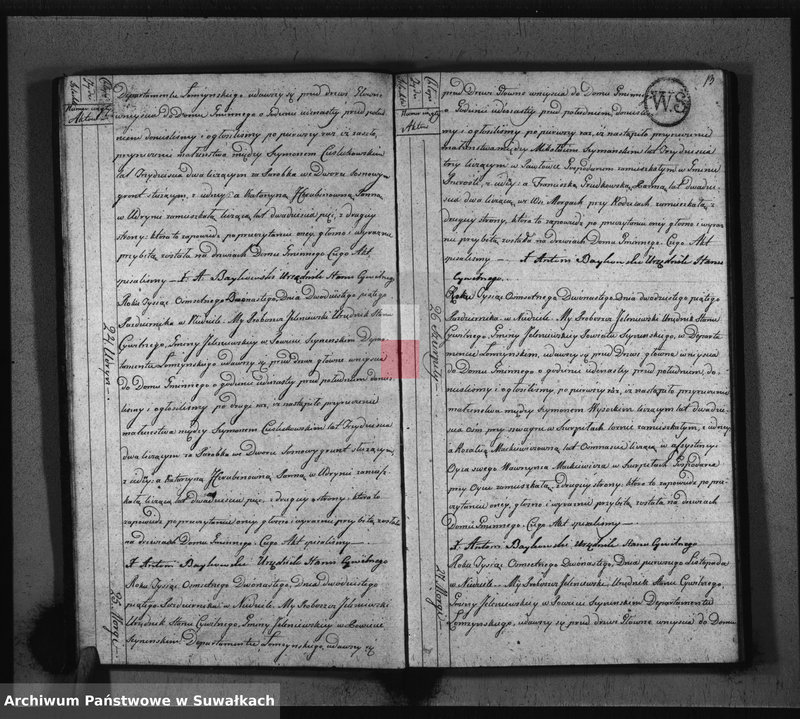 Departamentu Łomżyńskiego, udawszy się przed drzwi Główne
wniyścia do Domu Gminnego o Godzinie iedenastey przed połud
niem donieśliśmy i ogłosiliśmy po pierwszy raz, iż zaszło
przyrzeczenie małżeństwa między Szymonem
lat Trzydziestu dwa liczącym w Dworu Sosnowy
grunt Katarzyną Panną
w Udryni zamieszkałą liczącą lat dwadzieścia pięć, z drugiey
strony; która to zapowiedź po przeczytaniu oney głośno i wyraźnie
przybitą została na drzwiach Domu Gminnego. Czego Akt
spisaliśmy — X A. Baykowski Urzędnik Stanu Cywilnego
24 Udryn
Roku Tysiąc Osmsetnego Dwonastego, Dnia Dwudziestego piątego
Pazdziernika w Jeleniewski Urzędnik Stanu
Cywilnego, Gminy Jeleniewskiey w Powiecie Seyneńskim Depar
tamentu Łomżyńskiego udawszy się przed drzwi główne wniyścia
do Domu Gminnego o godzinie iedenastey przed południem donie
śliśmy i ogłosiliśmy po drugi raz, iż nastąpiło przyrzeczenie
małżeństwa między Szymonem lat Trzydziestu
dwa liczącym za Parobka we Dworu Sosnowy grunt służącym,
Katarzyną Panną w Udryni zamiesz
kałą liczącą lat dwadzieścia pięć, z drugiey strony; która to
zapowiedź po przeczytaniu oney głośno i wyraźnie przybitą została
na drzwiach Domu Gminnego. Czego Akt spisaliśmy —
X Antoni Baykowski Urzędnik Stanu Cywilnego
25
Roku Tysiąc Osmsetnego Dwonastego, Dnia dwudziestego
piątego Pazdziernika w My Jeleniewski
Urzędnik Stanu Cywilnego, Gminy Jeleniewskiey w Powiecie
Seyneńskim Departamentu Łomżyńskiego, udawszy się
13
WS
przed Drzwi Główne wniyścia do Domu Gminnego
o Godzinie iedenastey przed południem, doniesliś
my i ogłosiliśmy po pierwszy raz, iż nastąpiło przyrzeczenie
małżeństwa między Mikołaiem Szymańskim lat Trzydziestu
trzy liczącym w Gospodarzem zamieszkałym w Gminie
Franciszką Panną lat dwadzie
ścia dwa liczącą, we Wsi Morgach przy Rodzicach zamieszkałą, z
drugiey strony, która to zapowiedź po przeczytaniu oney głośno i wyraź
nie przybitą została na drzwiach Domu Gminnego. Czego Akt
spisaliśmy — X Antoni Baykowski Urzędnik Stanu
Cywilnego.
26
Roku Tysiąc Osmsetnego Dwonastego, Dnia dwudziestego piątego
Pazdziernika w My Jeleniewski Urzędnik Stanu
Cywilnego, Gminy Jeleniewskiey Powiatu Seyneńskiego, w Departa
mencie Łomżyńskim, udawszy się przed Drzwi główne wniyścia
do Domu Gminnego o godzinie iedenastey przed południem, do
nieśliśmy i ogłosiliśmy, po pierwszy raz, iż nastąpiło przyrzeczenie
małżeństwa między Szymonem Wysockim liczącym lat dwadzie
ścia osm przy szwagru w Szurpiłach zamieszkałym,
a Rozalią Mackiewiczówną lat Ośmnaście liczącą w assystencyi
Oyca swego Wawrzyńca Mackiewicza w Szurpiłach Gospodarza
przy Oycu zamieszkałą, z drugiey strony; która to zapowiedź po prze
czytaniu oney, głośno i wyraźnie przybitą została na drzwiach
Domu Gminnego. Czego Akt spisaliśmy —
X Antoni Baykowski Urzędnik Stanu Cywilnego
27 Morgi
Roku Tysiąc Osmsetnego Dwonastego, Dnia pierwszego Listopada
w My Jeleniewski, Urzędnik Stanu Cywilnego,
Gminy Jeleniewskiey w Powiecie Seyneńskim Departamentu
Łomżyńskiego, udawszy się przed drzwi Główne wniyścia do Domu
Archiwum Państwowe w Suwałkach